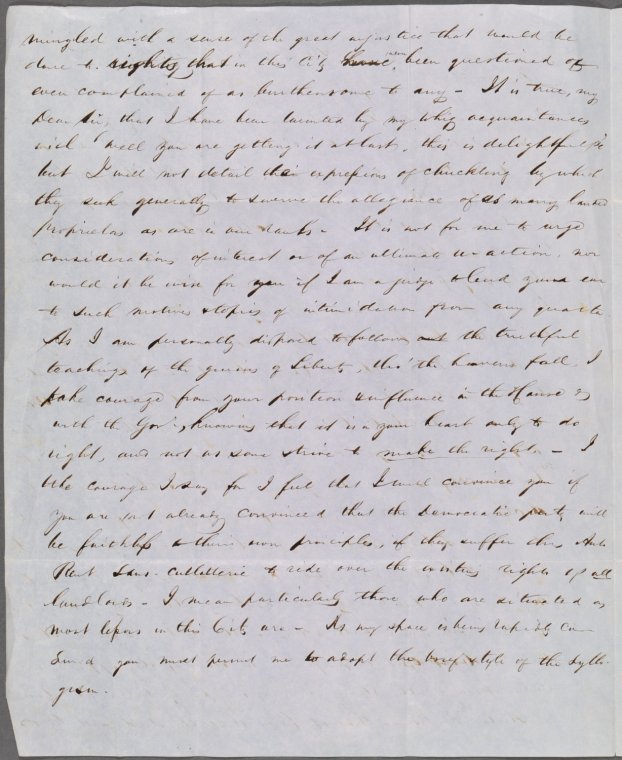 mingled with a sense of the great injustice that would be
done to rights that in this City have never been questioned or
even complained of as burthensome to any - It is true, my
Dear Sir, that I have been taunted by my whig acquaintances
with "Well you are getting it at last, this is delightful" &c
but I will not detail their expressions of chuckling by which
they seek generally to swerve the allegiance of as many landed
proprietors as are in our ranks - It is not for me to urge
considerations of interest or of an ultimate re-action, nor
would it be wise for you if I am a judge to lend your ear
to such motives & topics of intimidation from any quarter
As I am personally disposed to follow out the truthful
teachings of the genius of Liberty, tho' the heavens fall, I
take courage from your position & influence in the House &
with the Govr, knowing that it is in your heart only to do
right, and not as some strive to make the right - I
take courage I say for I feel that I will convince you if
you are not already convinced that the Democratic party will
be faithless to their own principles, if they suffer this Anti
Rent Sans-cullotterie to ride over the existing rights of all
landlords - I mean particularly those who are situated as
most lessors in this City are - As my space is being rapidly con-
sumed you must permit me to adopt the brief style of the Syllo-
gism.